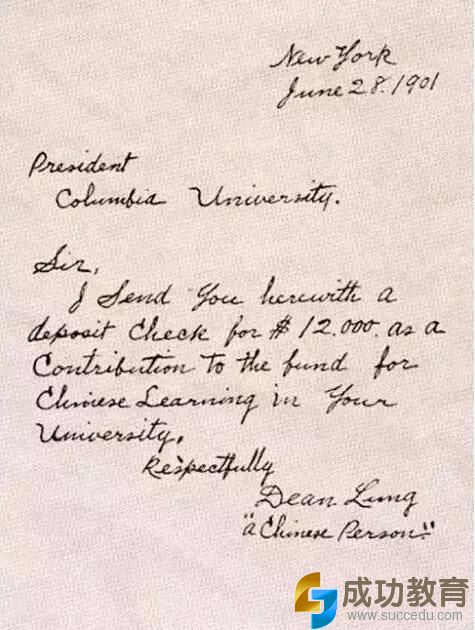 New York
June 28. 1901
President
Columbia University.
Sir,
I Send You herewith a
deposit Check for $12.000. as a
Contribution To the fund for
Chinese Learning in Your
University.
Respectfully
Dean Lung
"a Chinese Person."
成功教育
www.succedu.com